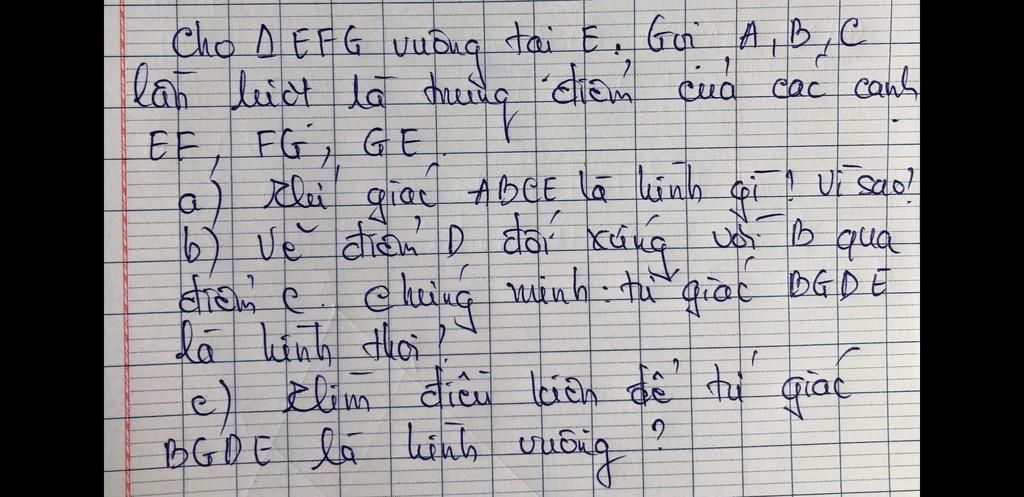 Cho Δ EFG vuông tại E. Gọi A, B, C
lần lượt là trung điểm của các cạnh
EF, FG, GE.
a) Tứ giác ABCE là hình gì? Vì sao?
b) Vẽ điểm D đối xứng với B qua
điểm C. Chứng minh: tứ giác BGDE
là hình thoi?
c) Tìm điều kiện để tứ giác
BGDE là hình vuông?